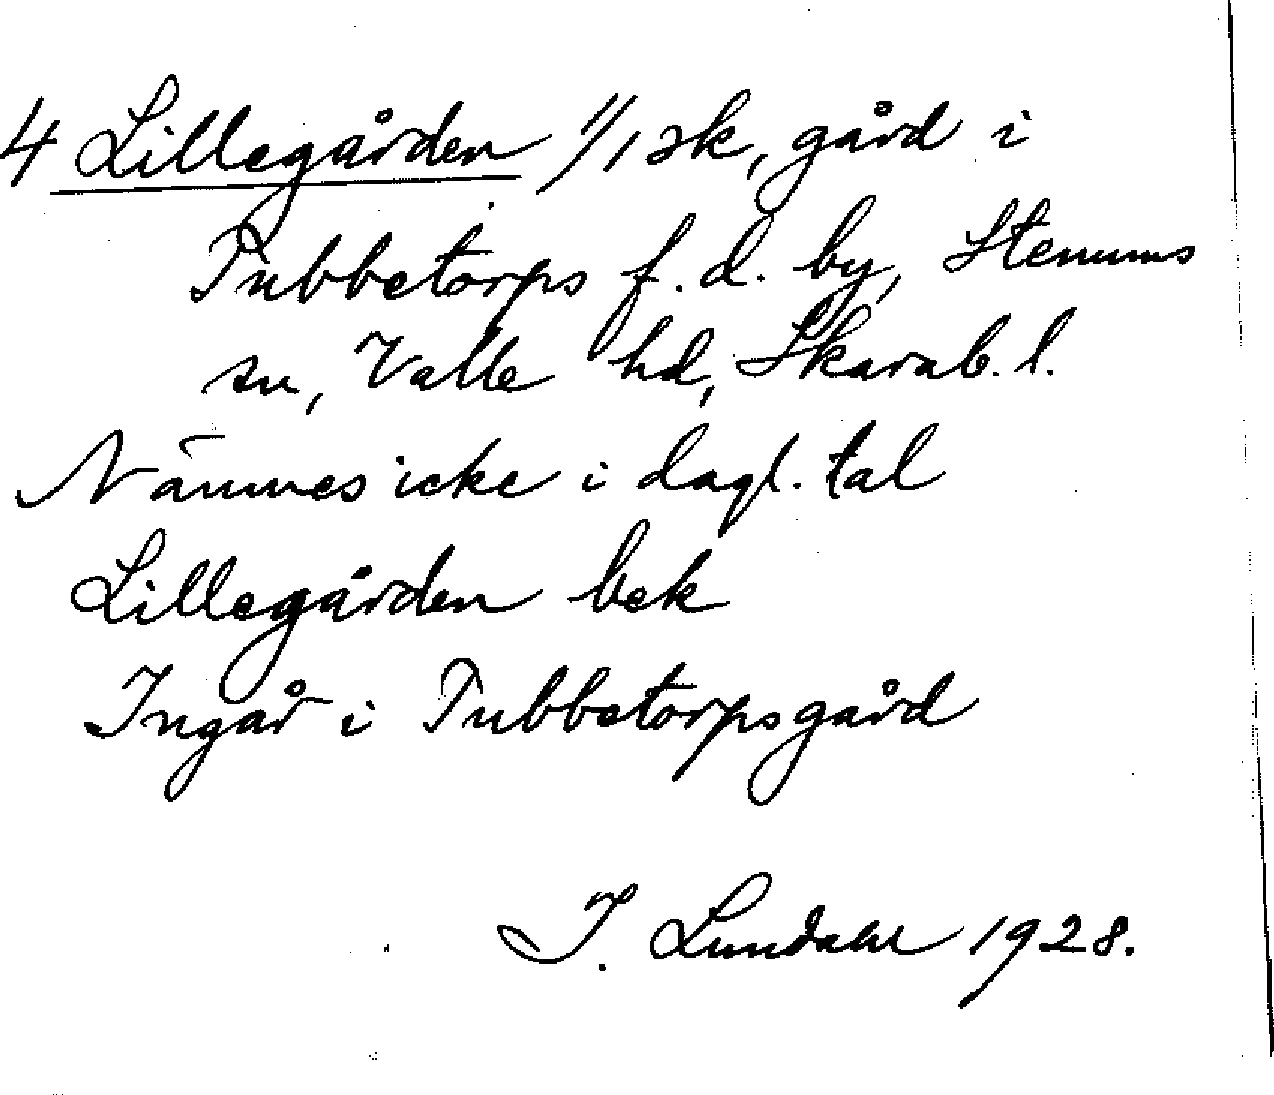 4 Lillegården 1/1 sk, gård i
Pubbetorps f.d. by, Stenums
sn, Valle hd, Skarab. l.
Nämnes icke i dagl. tal
Lillegården bek
Ingår i Pubbetorpsgård
I. Lundahl 1928.